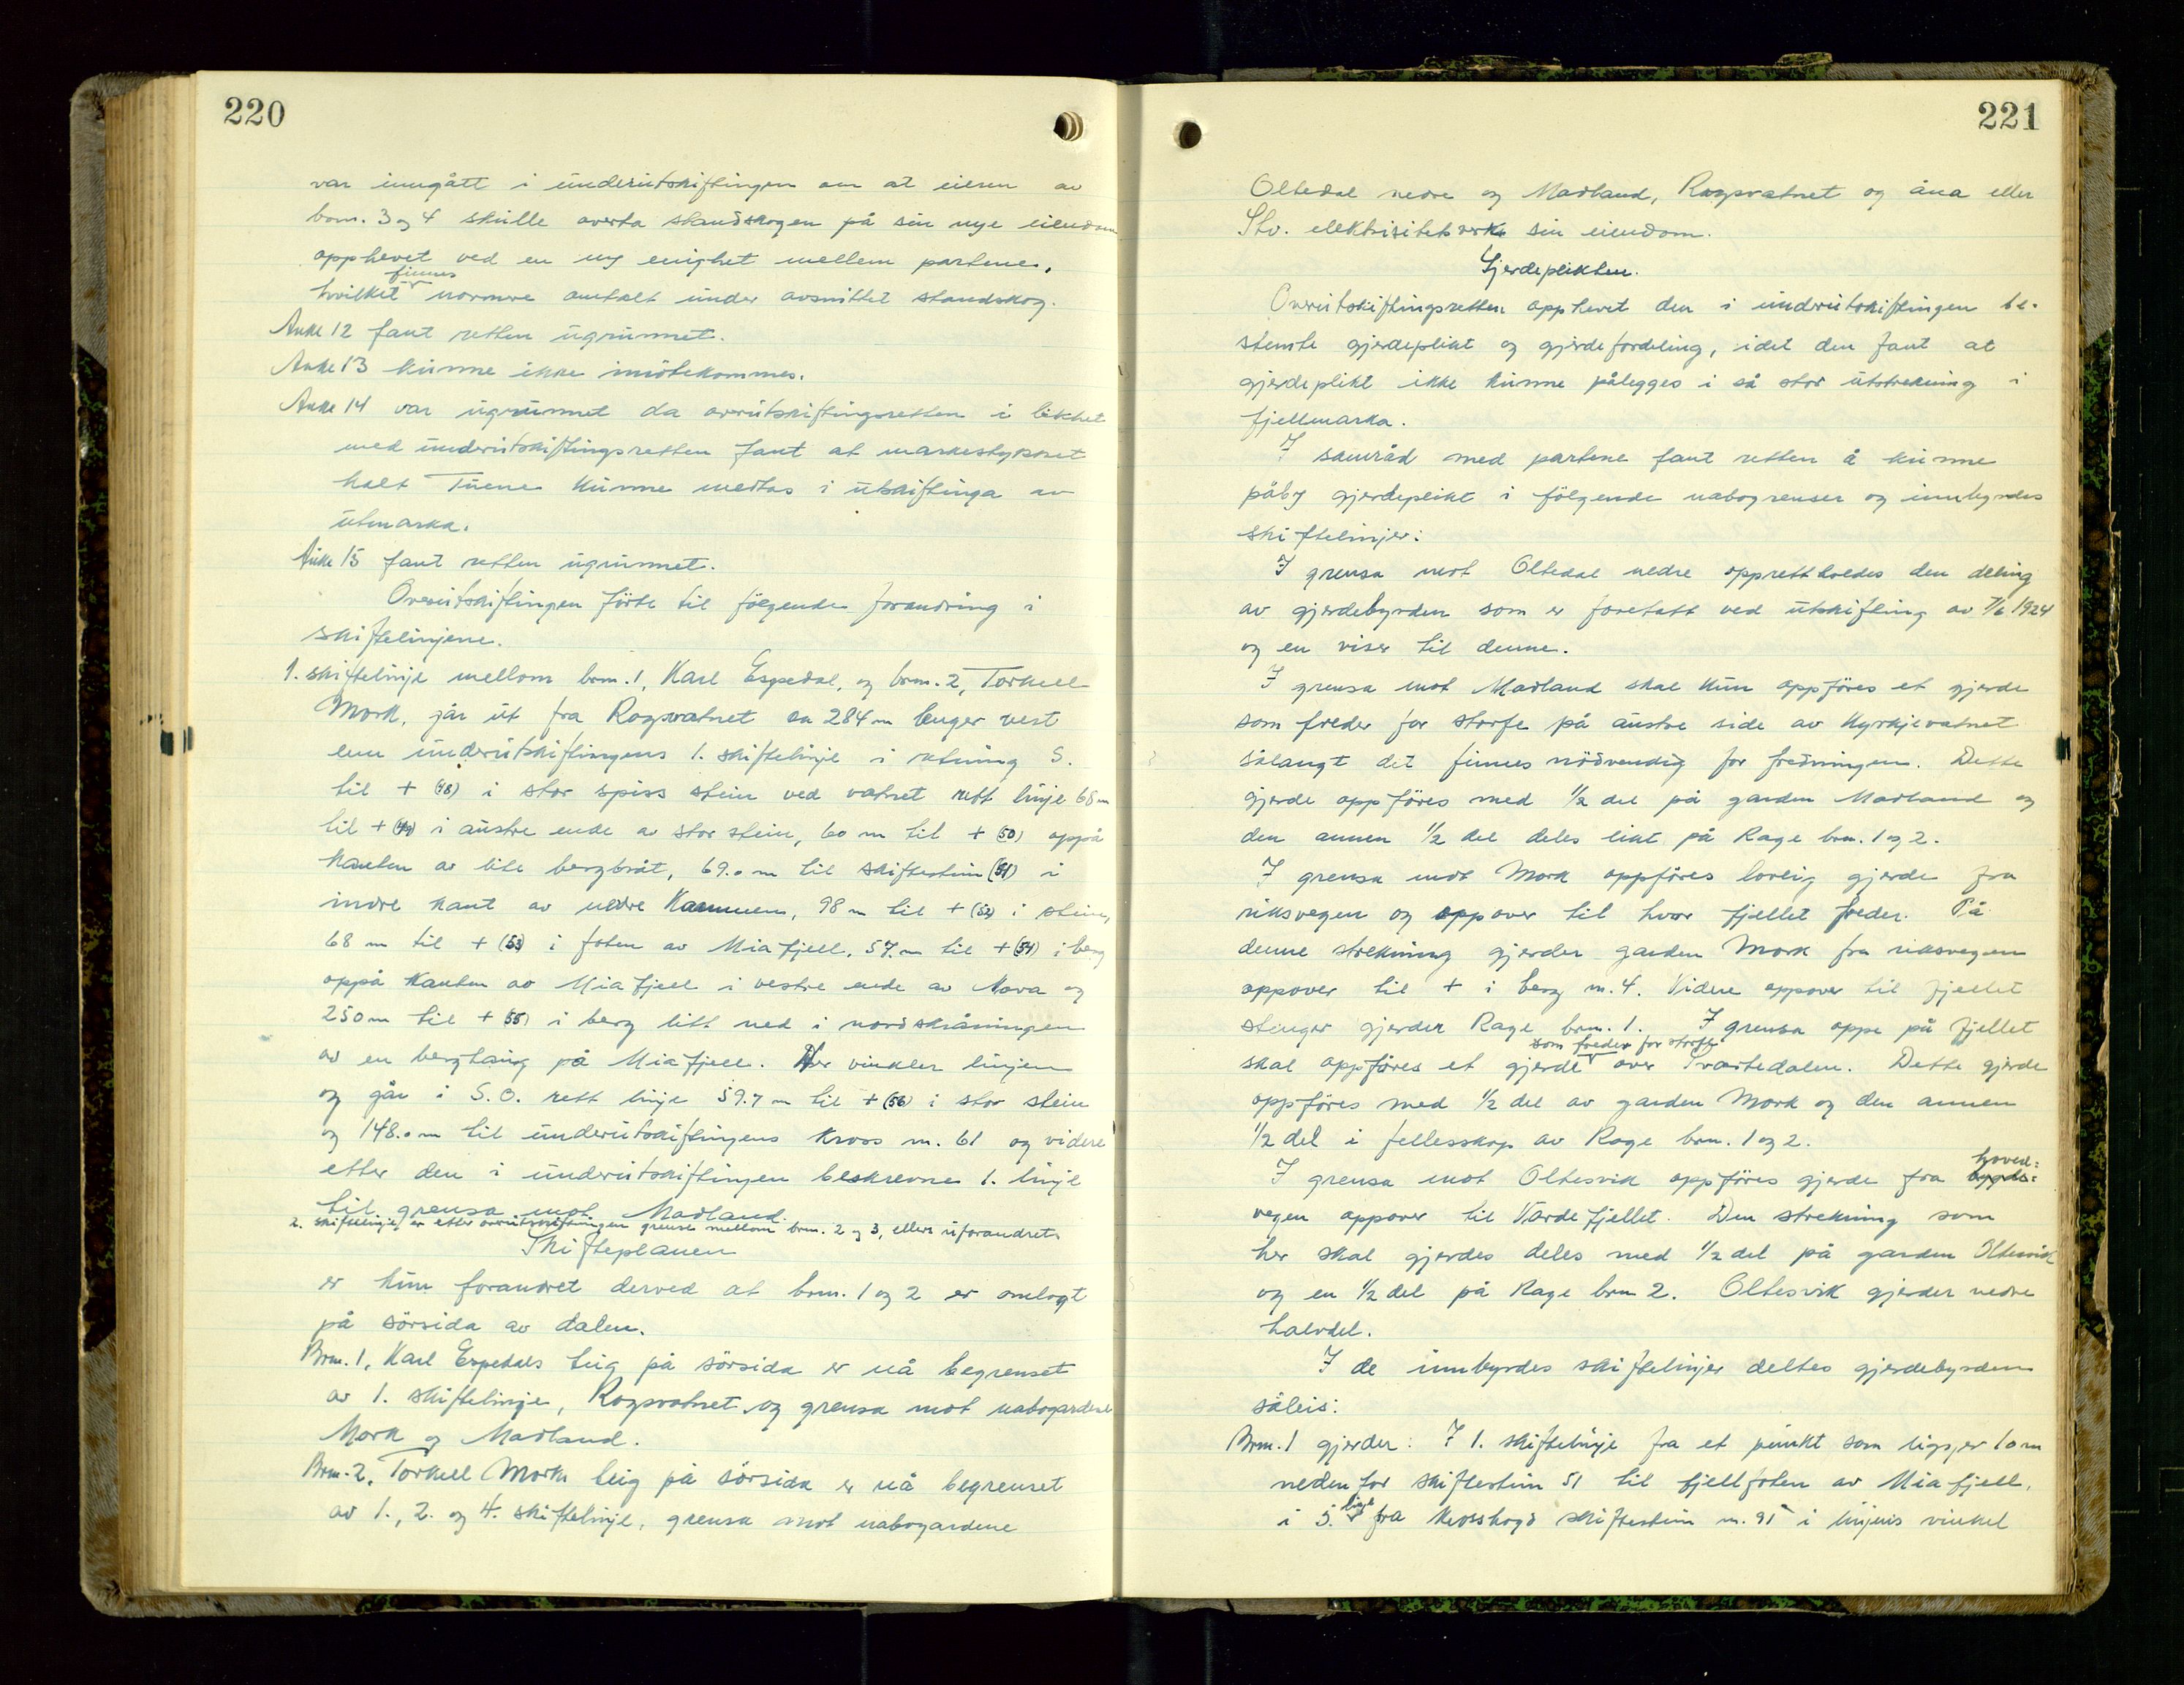 220
var inngått i underutskiftingen om at eieren av
brm. 3 og 4 skulle overta standskogen på sin nye eiendom
opphevet ved en ny enighet mellem partene,
hvilket finnes nærmere omtalt under avsnittet standskog.
Anke 12 fant retten ugrunnet.
Anke 13 kunne ikke imötekommes.
Anke 14 var ugrunnet da overutskiftingsretten i likhet
med underutskiftingsretten fant at markestykket
kalt Tuene kunne medtas i utskiftinga av
utmarka.
Anke 15 fant retten ugrunnet.
Overutskiftingen förte til fölgende forandring i
skiftelinjene.
1. skiftelinje mellom brm. 1, Karl Espedal, og brm. 2, Torkell
Mork, går ut fra Ragsvatnet ca 284 m lenger vest
enn underutskiftingens 1. skiftelinje i retning S.
til + (48) i stor spiss stein ved vatnet rett linje 68 m
til + (49) i austre ende av stor stein, 60 m til + (50) oppå
kanten av lite bergbrat, 69.0 m til skiftestein (51) i
indre kant av nedre Kammen, 98 m til + (52) i stein,
68 m til + (53) i foten av Miafjell, 57. m til + (54) i berg
oppå kanten av Miafjell i vestre ende av Nova og
250 m til + (55) i berg litt ned i nordskråningen
av en berghaug på Miafjell. Her vinkler linjen
og går i S.O. rett linje 59.7 m til + (56) i stor stein
og 148.0 m til underutskiftingens kross nr. 61 og videre
etter den i underutskiftingen beskrevne 1. linje
til grensa mot Madland.
2. skiftelinje er etter overutskiftningen grense mellom brm. 2 og 3, ellers uforandret.
Skifteplanen
er kun forandret derved at brm. 1 og 2 er omlagt
på sörsida av dalen.
Brm. 1, Karl Espedals teig på sörsida er nå begrenset
av 1. skiftelinje, Ragsvatnet og grensa mot nabogardene
Mork og Madland.
Brm. 2, Torkell Morks teig på sörsida er nå begrenset
av 1., 2. og 4. skiftelinje, grensa mot nabogardene
221
Oltedal nedre og Madland, Ragsvatnet og åna eller
Stv. elektrisitetsverks sin eiendom.
Gjerdeplikten.
Overutskiftingsretten opphevet den i underutskiftingen be-
stemte gjerdeplikt og gjerdefordeling, idet den fant at
gjerdeplikt ikke kunne pålegges i så stor utstrekning i
fjellmarka.
I samråd med partene fant retten å kunne
påby gjerdeplikt i fölgende nabogrenser og innbyrdes
skiftelinjer:
I grensa mot Oltedal nedre opprettholdes den deling
av gjerdebyrden som er foretatt ved utskifting av 7/6 1924
og en viser til denne.
I grensa mot Madland skal kun oppföres et gjerde
som freder for storfe på austre side av Kyrkjevatnet
sålangt det finnes nödvendig for fredningen. Dette
gjerde oppföres med 1/2 del på garden Madland og
den annen 1/2 del deles likt på Rage brm. 1 og 2.
I grensa mot Mork oppföres lovlig gjerde fra
riksvegen og oppover til hvor fjellet freder. På
denne strekning gjerder garden Mork fra riksvegen
oppover til + i berg nr. 4. Videre oppover til fjellet
stenger gjerder Rage brm. 1. I grensa oppe på fjellet
skal oppföres et gjerde som freder for storfe over Svartedalen. Dette gjerde
oppföres med 1/2 del av garden Mork og den annen
1/2 del i fellesskap av Rage brm. 1 og 2.
I grensa mot Oltesvik oppföres gjerde fra hoved-
vegen oppover til Vardefjellet. Den strekning som
her skal gjerdes deles med 1/2 del på garden Oltesvik
og en 1/2 del på Rage brm 2. Oltesvik gjerder nedre
halvdel.
I de innbyrdes skiftelinjer deltes gjerdebyrden
såleis:
Brm. 1 gjerder: I 1. skiftelinje fra et punkt som ligger 10 m
nedenfor skiftestein 51 til fjellfoten av Miafjell,
i 5. linje fra krosshogd skiftestein nr. 91 i linjens vinkel